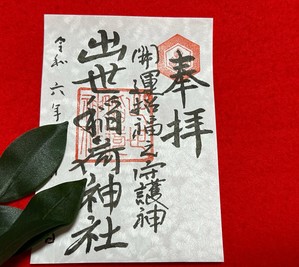 奉拝
開運招福之守護神
出世稲荷神社
令和六年